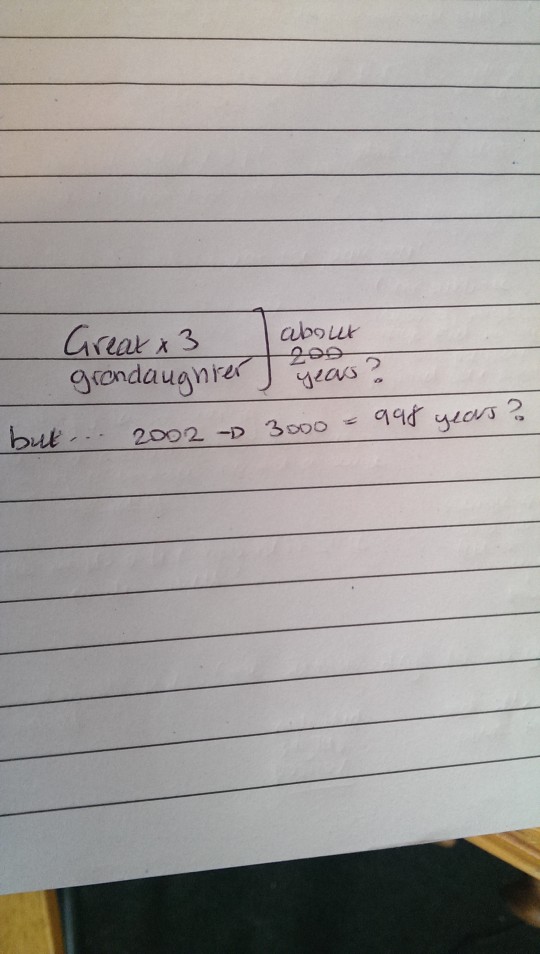 Great x 3
grandaughter ] about
200
years?
but... 2002 → 3000 = 998 years?